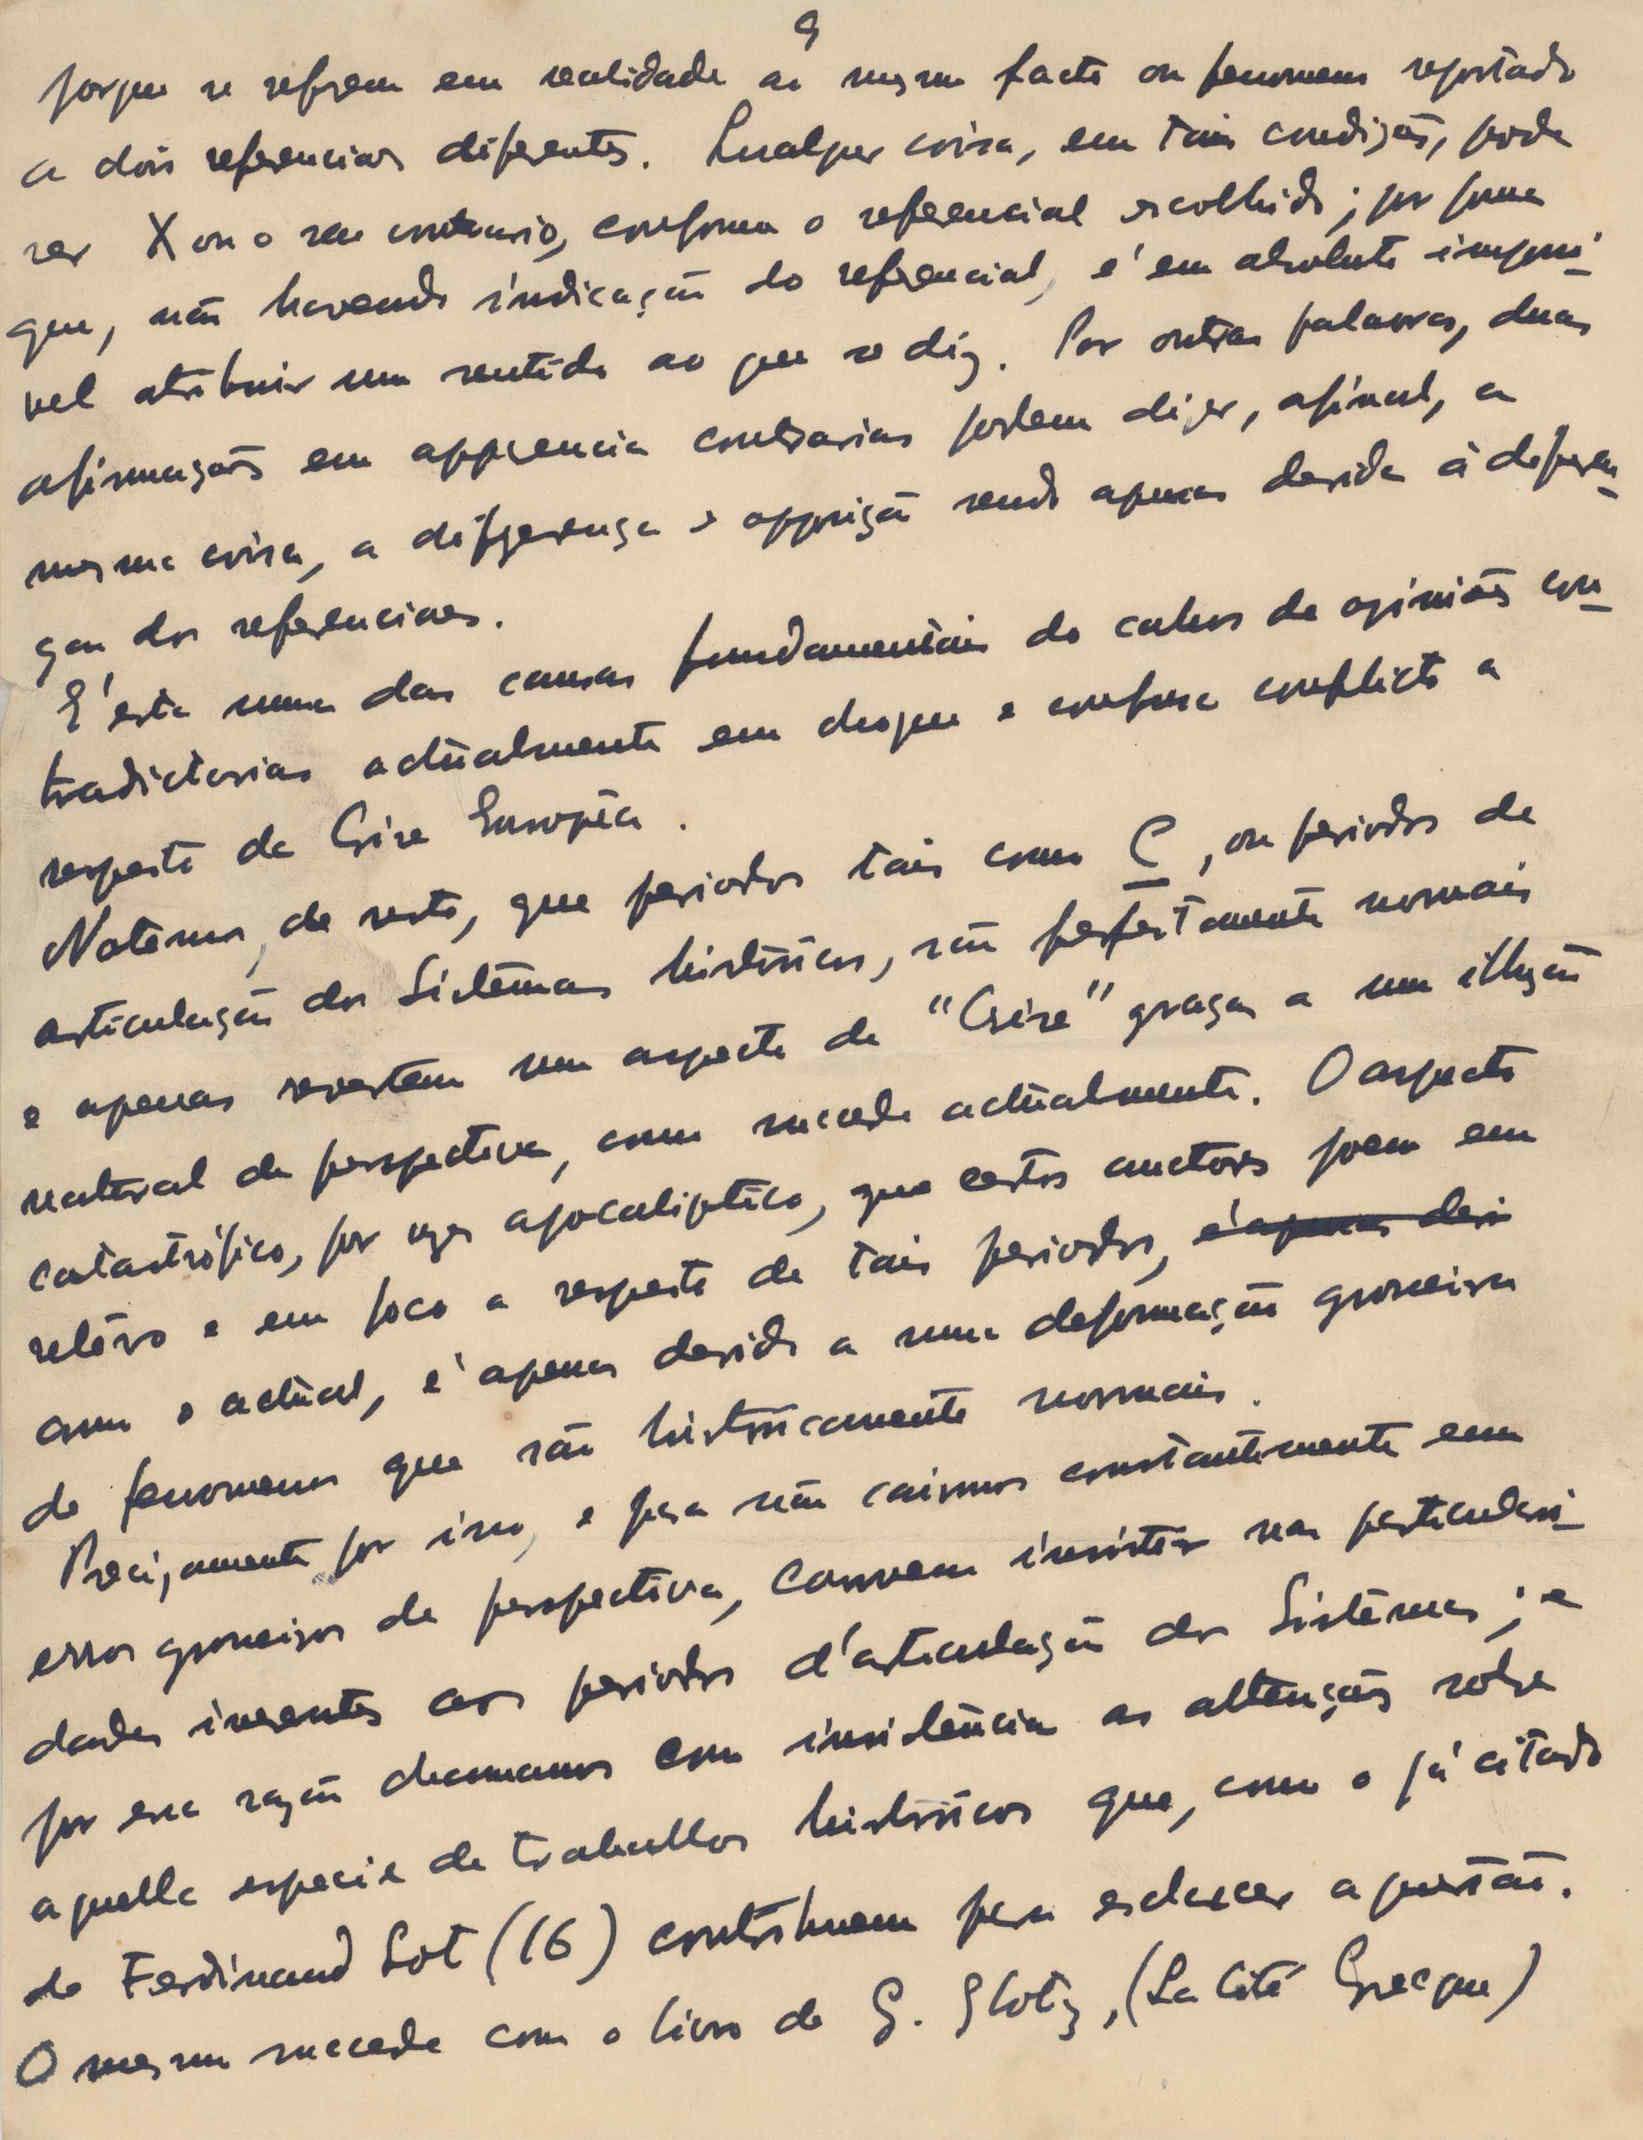 9
porque se referem em realidade ao mesmo facto ou fenomeno reportado
a dois referenciaes diferentes. Qualquer coisa, em tais condições, pode
ser X ou o seu contrario, conforme o referencial escolhido; por forma
que, não havendo indicação do referencial, é em absoluto impossi-
vel atribuir um sentido ao que se diz. Por outras palavras, duas
afirmações em apparencia contrarias podem dizer, afinal, a
mesma coisa, a differença e opposição sendo apenas devida á deferen-
ça dos referenciaes.
É esta uma das causas fundamentais do cahos de opiniões con-
tradictorias actualmente em choque e confuso conflicto a
respeito da Crise Européa.
Notêmos, de resto, que periodos tais como C, ou periodos de
articulação dos Sistêmas históricos, são perfeitamente normais
e apenas revestem um aspecto de "Crise" graças a uma illuzão
natural de perspectiva, como succede actualmente. O aspecto
catastrófico, por vezes apocaliptico, que certos auctores poem em
relêvo e em foco a respeito de tais periodos, é apenas devi
como o actual, é apenas devido a uma deformação grosseira
de fenomenos que são históricamente normais.
Precizamente por isso, e para não cairmos constantemente em
erros grosseiros de perspectiva, convem insistir nas particulari-
dades inerentes aos periodos d'articulação dos Sistêmas; e
por essa razão chamamos com insistência as attenções sobre
aquella especie de trabalhos históricos que, como o já citado
de Ferdinand Lot (16) contribuem para esclarecer a questão.
O mesmo succede com o livro de G. Glotz, (La Cité Grecque)